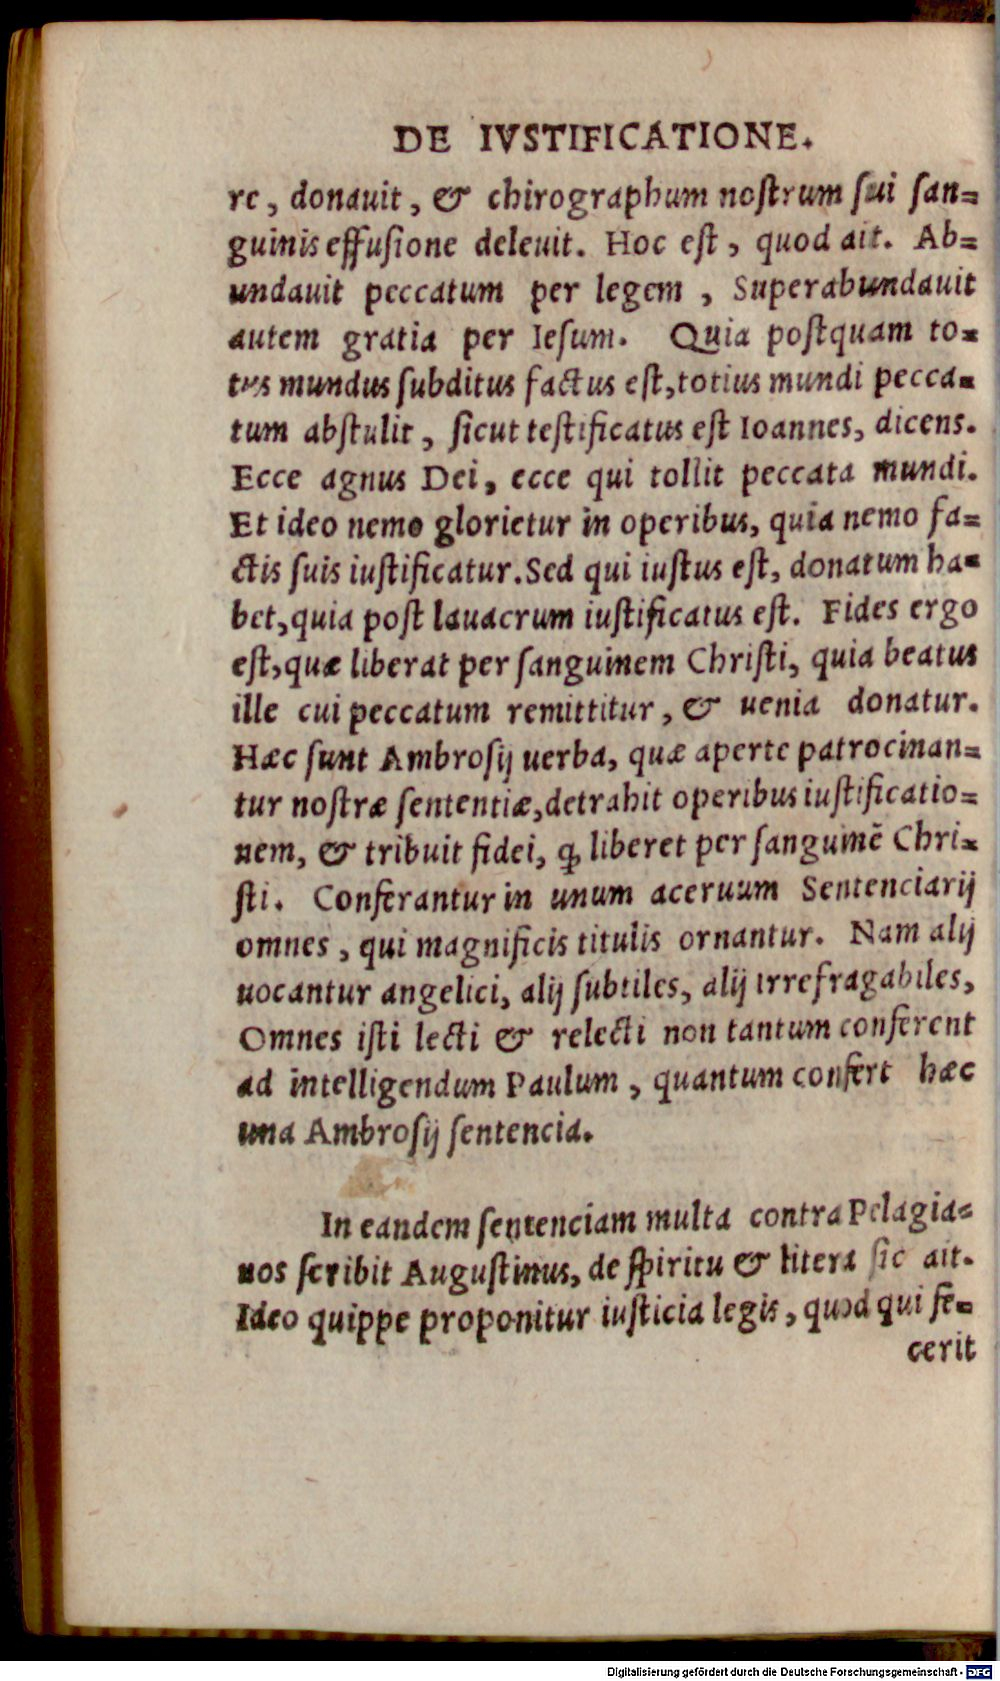 DE IVSTIFICATIONE.
re, donauit, & chirographum nostrum sui san=
guinis effusione deleuit. Hoc est, quod ait. Ab=
undauit peccatum per legem, Superabundauit
autem gratia per Iesum. Quia postquam to=
tus mundus subditus factus est, totius mundi pecca=
tum abstulit, sicut testificatus est Ioannes, dicens.
Ecce agnus Dei, ecce qui tollit peccata mundi.
Et ideo nemo glorietur in operibus, quia nemo fa=
ctis suis iustificatur. Sed qui iustus est, donatum ha=
bet, quia post lauacrum iustificatus est. Fides ergo
est, quæ liberat per sanguinem Christi, quia beatus
ille cui peccatum remittitur, & uenia donatur.
Hæc sunt Ambrosij uerba, quæ aperte patrocinan=
tur nostræ sententiæ, detrahit operibus iustificatio=
nem, & tribuit fidei, ꝙ liberet per sanguinē Chri=
sti. Conferantur in unum aceruum Sentenciarij
omnes, qui magnificis titulis ornantur. Nam alij
uocantur angelici, alij subtiles, alij irrefragabiles,
Omnes isti lecti & relecti non tantum conferent
ad intelligendum Paulum, quantum confert hæc
una Ambrosij sentencia.
In eandem sentenciam multa contra Pelagia=
nos scribit Augustinus, de spiritu & litera sic ait.
Ideo quippe proponitur iusticia legis, quod qui fe=
cerit
Digitalisierung gefördert durch die Deutsche Forschungsgemeinschaft - DFG